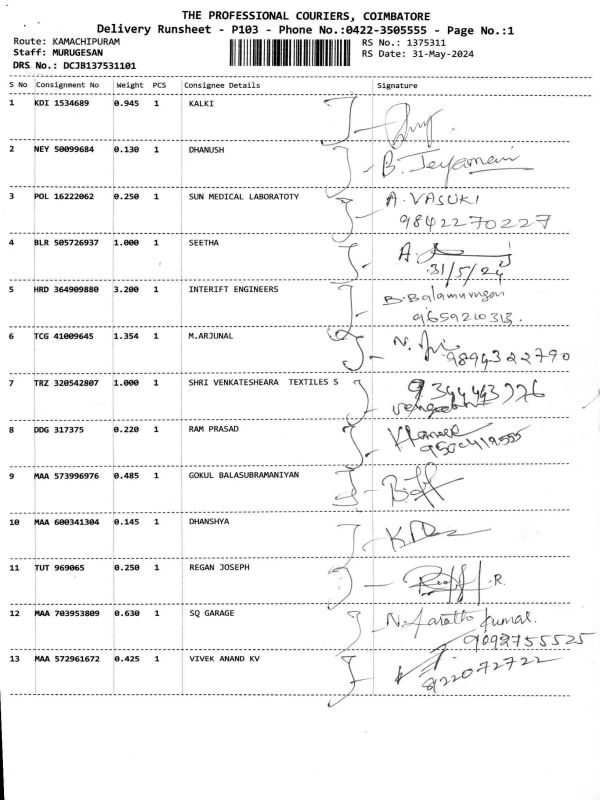 THE PROFESSIONAL COURIERS, COIMBATORE
Delivery Runsheet - P103 - Phone No.:0422-3505555 - Page No.:1
Route: KAMACHIPURAM RS No.: 1375311
Staff: MURUGESAN RS Date: 31-May-2024
DRS No.: DCJB137531101
S No Consignment No Weight PCS Consignee Details Signature
1 KDI 1534689 0.945 1 KALKI
2 NEY 50099684 0.130 1 DHANUSH B. Jeyamani
3 POL 16222062 0.250 1 SUN MEDICAL LABORATOTY A. VASUKI
9842270227
4 BLR 505726937 1.000 1 SEETHA A.
31/5/24
5 HRD 364909880 3.200 1 INTERIFT ENGINEERS B. Balamurugan
9659210313.
6 TCG 41009645 1.354 1 M.ARJUNAL N.
9894322790
7 TRZ 320542807 1.000 1 SHRI VENKATESHEARA TEXTILES S
8 DDG 317375 0.220 1 RAM PRASAD
9 MAA 573996976 0.485 1 GOKUL BALASUBRAMANIYAN
10 MAA 600341304 0.145 1 DHANSHYA
11 TUT 969065 0.250 1 REGAN JOSEPH
12 MAA 703953809 0.630 1 SQ GARAGE N. Sarath Kumar.
9092755525
13 MAA 572961672 0.425 1 VIVEK ANAND KV